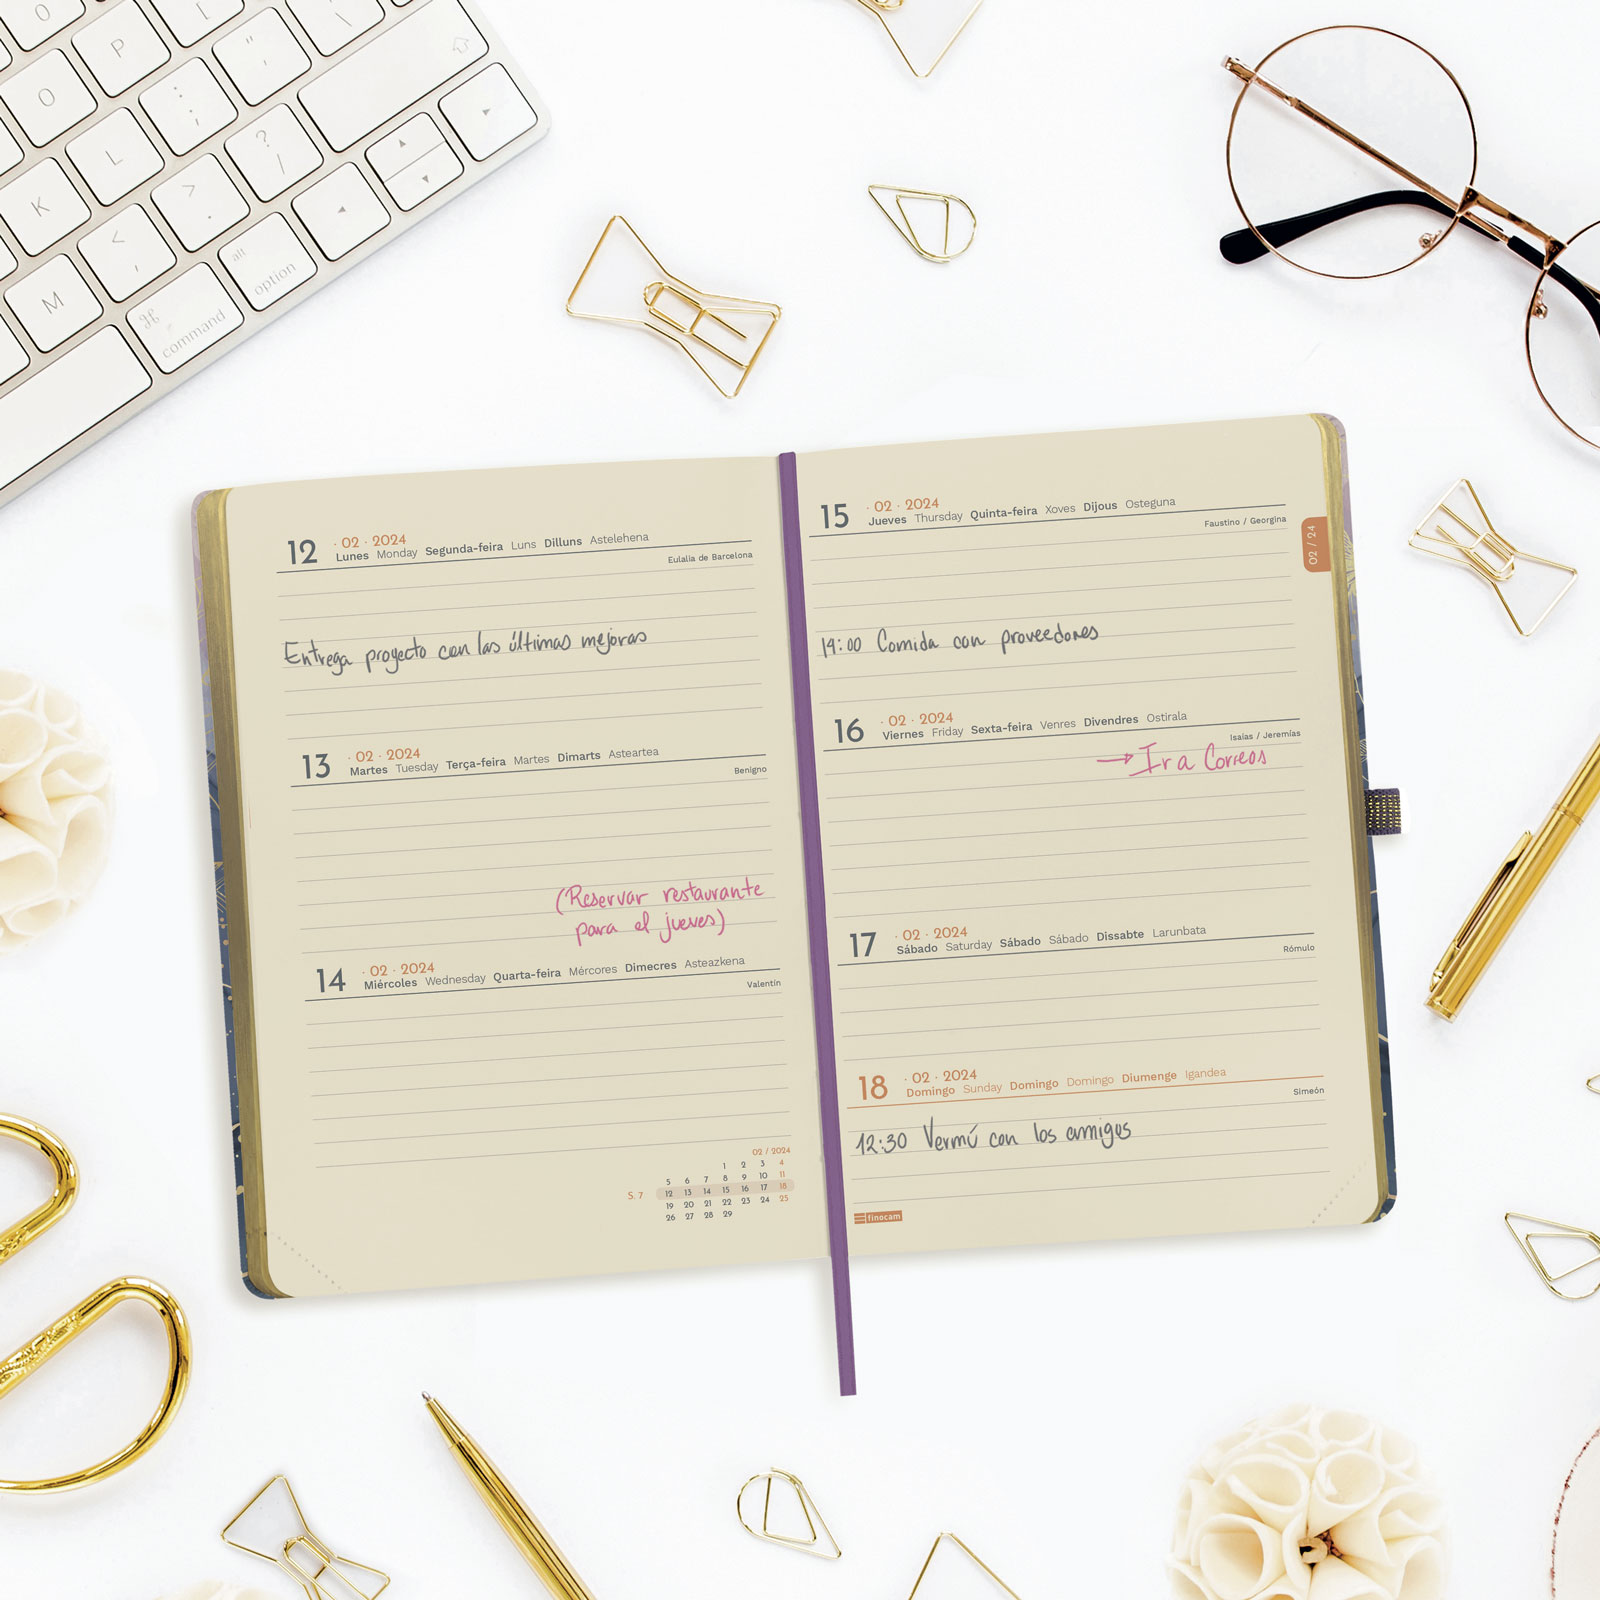 O
P
:
;
"
'
K
L
>
.
?
/
M
<
,
alt
option
⌘
command
12 · 02 · 2024
Lunes Monday Segunda-feira Luns Dilluns Astelehena
Eulalia de Barcelona
Entrega proyecto con las últimas mejoras
13 · 02 · 2024
Martes Tuesday Terça-feira Martes Dimarts Asteartea
Benigno
(Reservar restaurante
para el jueves)
14 · 02 · 2024
Miércoles Wednesday Quarta-feira Mércores Dimecres Asteazkena
Valentín
02 / 2024
1 2 3 4
5 6 7 8 9 10 11
S. 7 12 13 14 15 16 17 18
19 20 21 22 23 24 25
26 27 28 29
15 · 02 · 2024
Jueves Thursday Quinta-feira Xoves Dijous Osteguna
Faustino / Georgina
02 / 24
14:00 Comida con proveedores
16 · 02 · 2024
Viernes Friday Sexta-feira Venres Divendres Ostirala
Isaías / Jeremías
→ Ir a Correos
17 · 02 · 2024
Sábado Saturday Sábado Sábado Dissabte Larunbata
Rómulo
18 · 02 · 2024
Domingo Sunday Domingo Domingo Diumenge Igandea
Simeón
12:30 Vermú con los amigos
finocam